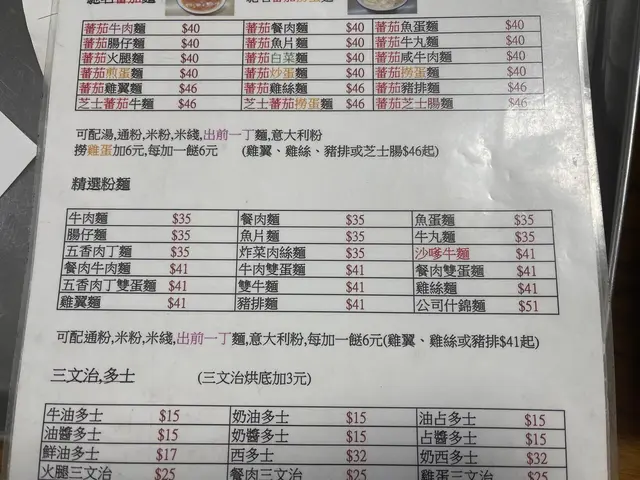 蕃茄牛肉麵 $40 蕃茄餐肉麵 $40 蕃茄魚蛋麵 $40
蕃茄腸仔麵 $40 蕃茄魚片麵 $40 蕃茄牛丸麵 $40
蕃茄火腿麵 $40 蕃茄白菜麵 $40 蕃茄咸牛肉麵 $40
蕃茄煎蛋麵 $40 蕃茄炒蛋麵 $40 蕃茄撈蛋麵 $40
蕃茄雞翼麵 $46 蕃茄雞絲麵 $46 蕃茄豬排麵 $46
芝士蕃茄牛麵 $46 芝士蕃茄撈蛋麵 $46 蕃茄芝士腸麵 $46
可配湯,通粉,米粉,米綫,出前一丁麵,意大利粉
撈雞蛋加6元,每加一餸6元 (雞翼、雞絲、豬排或芝士腸$46起)
精選粉麵
牛肉麵 $35 餐肉麵 $35 魚蛋麵 $35
腸仔麵 $35 魚片麵 $35 牛丸麵 $35
五香肉丁麵 $35 炸菜肉絲麵 $35 沙嗲牛麵 $41
餐肉牛肉麵 $41 牛肉雙蛋麵 $41 餐肉雙蛋麵 $41
五香肉丁雙蛋麵 $41 雙牛麵 $41 雞絲麵 $41
雞翼麵 $41 豬排麵 $41 公司什錦麵 $51
可配通粉,米粉,米綫,出前一丁麵,意大利粉,每加一餸6元(雞翼、雞絲或豬排$41起)
三文治,多士 (三文治烘底加3元)
牛油多士 $15 奶油多士 $15 油占多士 $15
油醬多士 $15 奶醬多士 $15 占醬多士 $15
鮮油多士 $17 西多士 $32 奶西多士 $32
火腿三文治 $25 餐肉三文治 $25 雞蛋三文治 $25